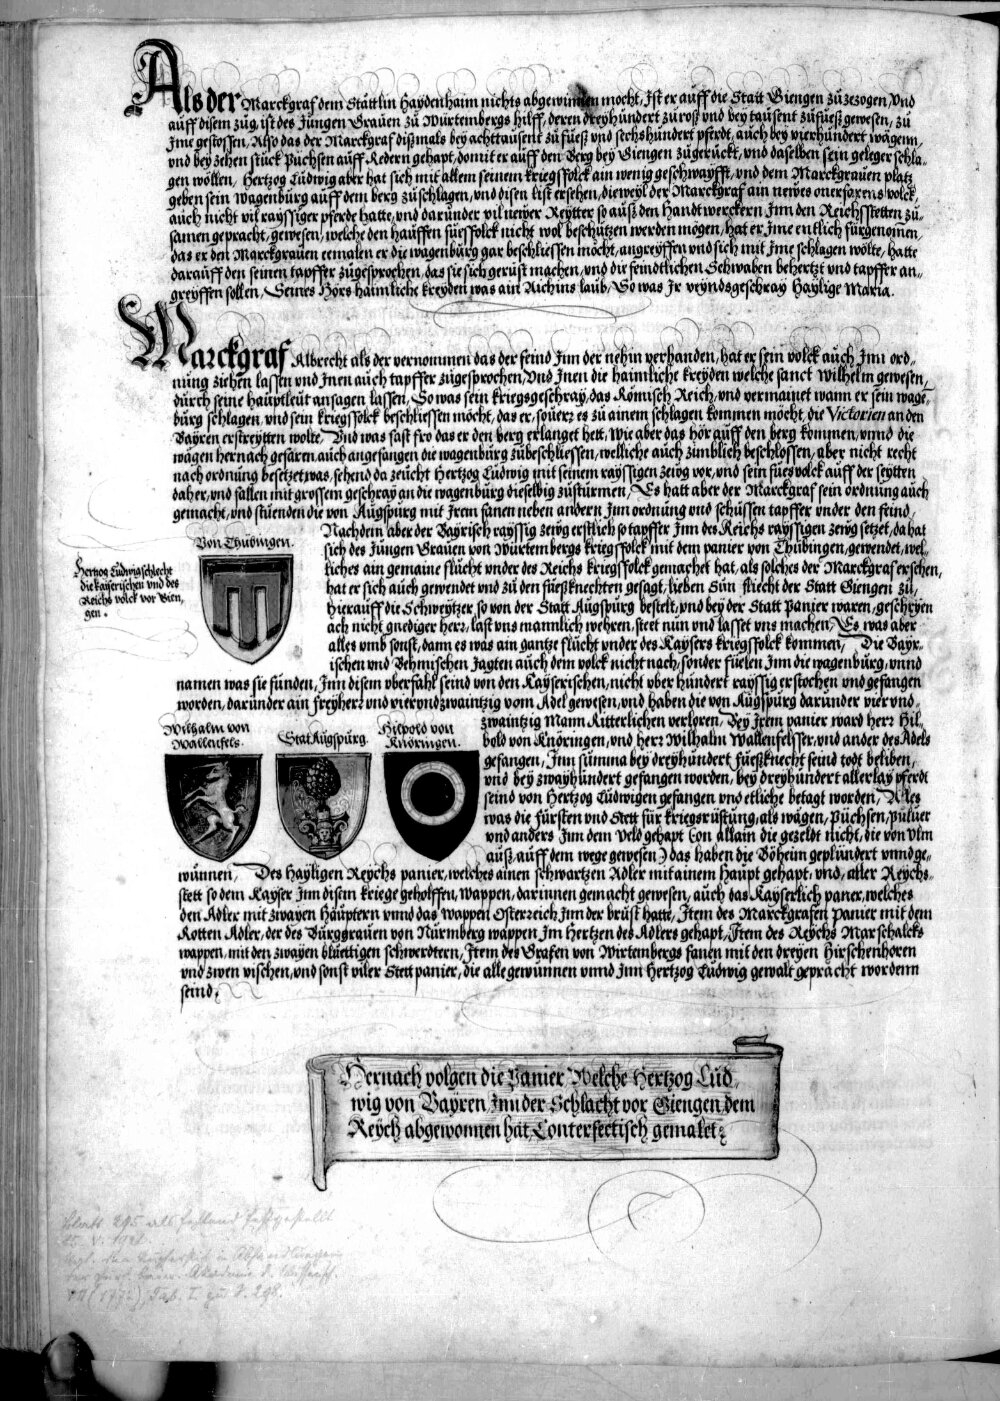 Als der Marckgraf dem Stättlin Haydenhaim nichts abgewinnen mocht, Ist er auff die Statt Giengen zůzezogen, Vnd
auff disem zůg, ist des Jungen Grauen zů Würtembergs hilff, deren dreyhundert zů roß vnd bey tausent zůfuesz gewesen, zů
Jme gestossen, Also das der Marckgraf dißmals bey achttausent zů fuesz vnd sechshundert pferdt, auch bey vierhundert wägenn,
vnd bey zehen stück Püchsen auff Redern gehapt, domit er auff den Berg bey Giengen zůgerückt, vnd daselben sein geleger schla-
gen wöllen, Hertzog Ludwig aber hat sich mit allem seinem kriegsfolck ain wenig geschwayfft, vnd dem Marckgrauen platz
geben sein wagenburg auff dem berg zůschlagen, vnd disen list ersehen, dieweyl der Marckgraf ain newes onerfarens volck,
auch nicht vil rayssiger pferde hatte, vnd darunder vil newer Reytter so auß den Handtwerckern Jnn den Reichsstetten zů-
samen gepracht, gewesen, welche den hauffen fuesfolck nicht wol beschützen werden mögen, hat er Jme entlich fürgenomen,
das er den Marckgrauen eemalen er die wagenburg gar beschliessen möcht, angreyffen vnd sich mit Jme schlagen wölte, hatte
darauff den seinen tapffer zůgesprochen, das sie sich gerüst machen, vnd die feindtlichen Schwaben behertzt vnd tapffer an-
greyffen sollen, Seines Hörs haimliche kreyden was ain Aichins laub, So was Jr veyndsgeschray Haylige Maria.
Marckgraf Albrecht als der vernommen das der feind Jnn der nehin verhanden, hat er sein volck auch Jnn ord-
nung ziehen lassen vnd Jnen auch tapffer zůgesprochen, Vnd Jnen die haimliche kreyden welche sanct Wilhelm gewesen,
durch seine hauptleut ansagen lassen, So was sein kriegsgeschray, das Römisch Reich, vnd vermainet wann er sein wage-
burg schlagen, vnd sein kriegsfolck beschliessen möcht, das er, souerr es zů ainem schlagen kommen möcht, die Victorien an den
Bayren erstreytten wolte, Vnd was fast fro das er den berg erlanget hett, Wie aber das hör auff den berg kommen, vnnd die
wägen hernach gefaren, auch angefangen die wagenburg zůbeschliessen, welliche auch zimblich beschlossen, aber nicht recht
nach ordnung besetzet was, sehend da zeucht Hertzog Ludwig mit seinem rayssigen zewg vor, vnd sein fuesvolck auff der seytten
daher, vnd fallen mit grossem geschray an die wagenburg dieselbig zůstürmen, Es hatt aber der Marckgraf sein ordnung auch
gemacht, vnd stuenden die von Augspurg mit Jrem fanen neben andern Jnn ordnung vnd schussen tapffer vnder den feind,
Nachdem aber der Bayrisch rayssig zewg erstlich so tapffer Jnn des Reichs rayssigen zewg setzet, da hat
sich des Jungen Grauen von Würtembergs kriegsfolck mit dem panier von Thübingen, gewendet, wel-
liches ain gemaine flucht vnder des Reichs kriegsfolck gemachet hat, als solches der Marckgraf ersehen,
hat er sich auch gewendet vnd zů den fueszknechten gesagt, lieben Sün fliecht der Statt Giengen zů,
hierauff die Schweytzer, so von der Statt Augspurg bestelt, vnd bey der Statt Panier waren, geschryen
ach nicht gnediger herr, last vns mannlich wehren, steet nun vnd lasset vns machen, Es was aber
alles vmb sonst, dann es was ain gantze flucht vnder des Kaysers kriegsfolck kommen, Die Bayr-
ischen vnd Behmischen Jagten auch dem volck nicht nach, sonder fuelen Jnn die wagenburg, vnnd
namen was sie funden, Jnn disem vberfahl seind von den Kayserischen, nicht vber hundert rayssig erstochen vnd gefangen
worden, darunder ain freyherr vnd viervndzwaintzig vom Adel gewesen, vnd haben die von Augspurg darunder vier vnd-
zwaintzig Mann Ritterlichen verloren, Bey Jrem panier ward herr Hil-
bold von Knöringen, vnd herr Wilhalm Wallenfelsser, vnd ander des Adels
gefangen, Jnn summa bey dreyhundert fueszknecht seind todt beliben,
vnd bey zwayhundert gefangen worden, bey dreyhundert allerlay pferdt
seind von Hertzog Ludwigen gefangen vnd etliche betagt worden, Alles
was die fürsten vnd Stett für kriegsrüstung, als wägen, Püchsen, puluer
vnd anders Jnn dem Veld gehapt (on allain die gezeldt nicht, die von Vlm
auß, auff dem wege gewesen) das haben die Böheim geplündert vnnd ge-
wunnen, Des Hayligen Reychs panier, welches ainen schwartzen Adler mit ainem Haupt gehapt, vnd, aller Reychs-
stett so dem Kayser Jnn disem kriege geholffen, wappen, darinnen gemacht gewesen, auch das Kayserlich paner, welches
den Adler mit zwayen Häuptern vnnd das wappen Osterreich Jnn der brust hatte, Jtem des Marckgrafen Panier mit dem
Rotten Adler, der des Burggrauen von Nürmberg wappen Jm Hertzen des Adlers gehapt, Jtem des Reychs Marschalcks
wappen, mit den zwayen bluettigen schwerdtern, Jtem des Grafen von Wirtembergs fanen mit den dreyen Hirschenhoren
vnd zwen vischen, vnd sonst viler Stett panier, die alle gewunnen vnnd Jnn Hertzog Ludwig gewalt gepracht wordenn
seind.
Von Thübingen.
Hertzog Ludwig schlecht
die kayserischen vnd des
Reichs volck vor Gien-
gen.
Wilhalm von
Wallenfels.
Stat Augspurg.
Hilpold von
Knöringen.
Hernach volgen die Panier Welche Hertzog Lud-
wig von Bayren Jnn der Schlacht vor Giengen dem
Reych abgewonnen hat, Conterfectisch gemalet.